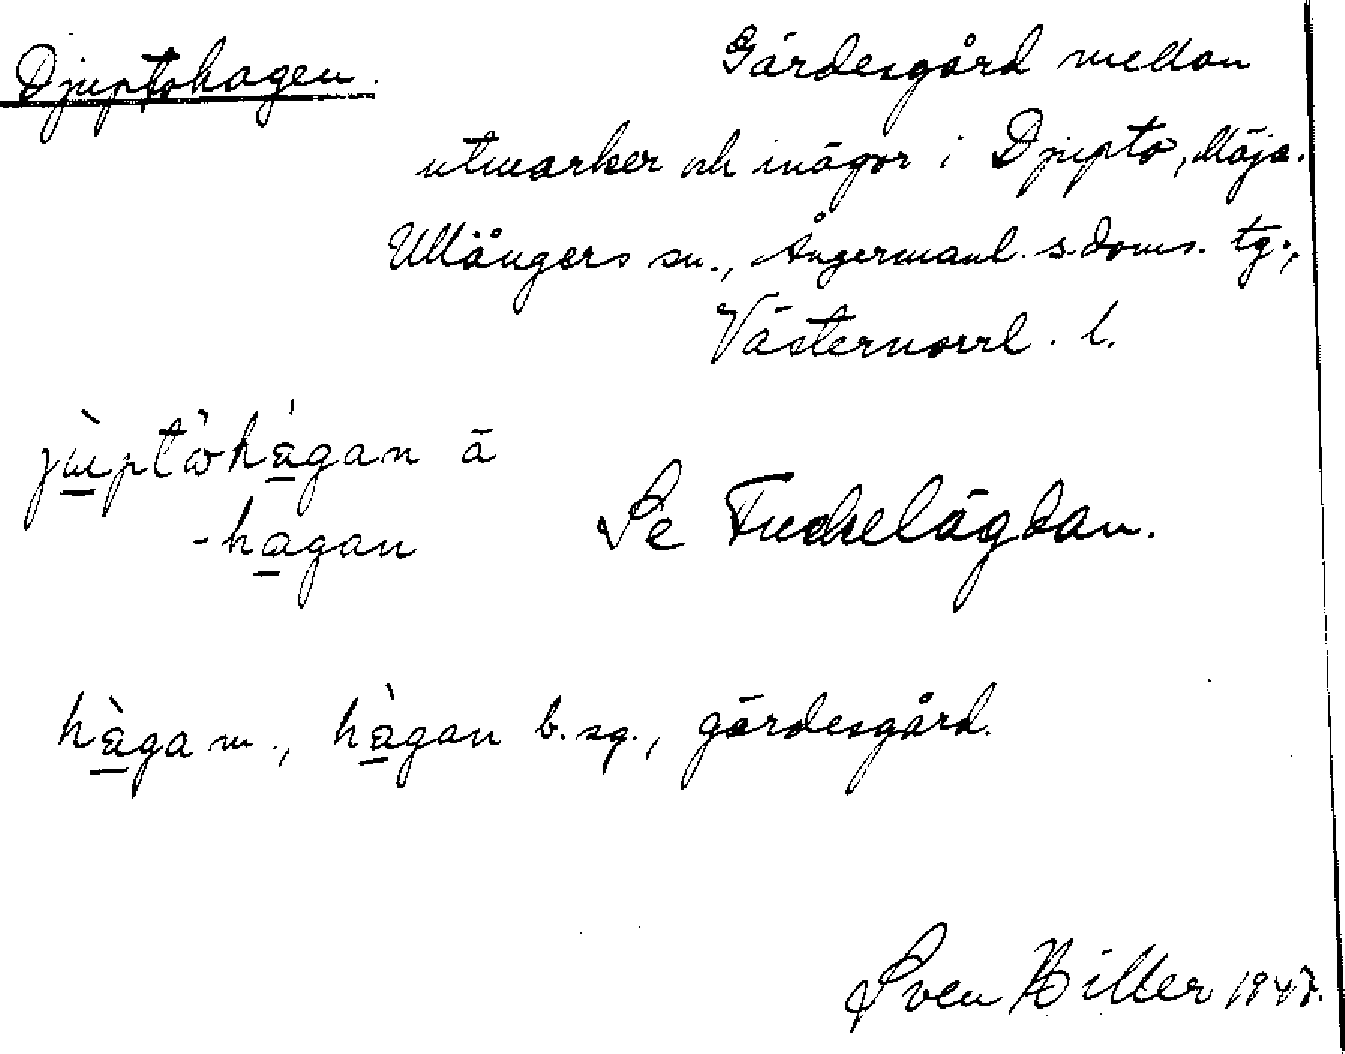 Djuptohagen.
Gärdesgård mellan
utmarker och inägor i Djupto, Mäja.
Ullångers sn., Ångermanl. s. doms. tg.,
Västernorrl. l.
hagan
Se
hàga m., hàgan b. sg., gärdesgård.
Sven Hiller 1947.